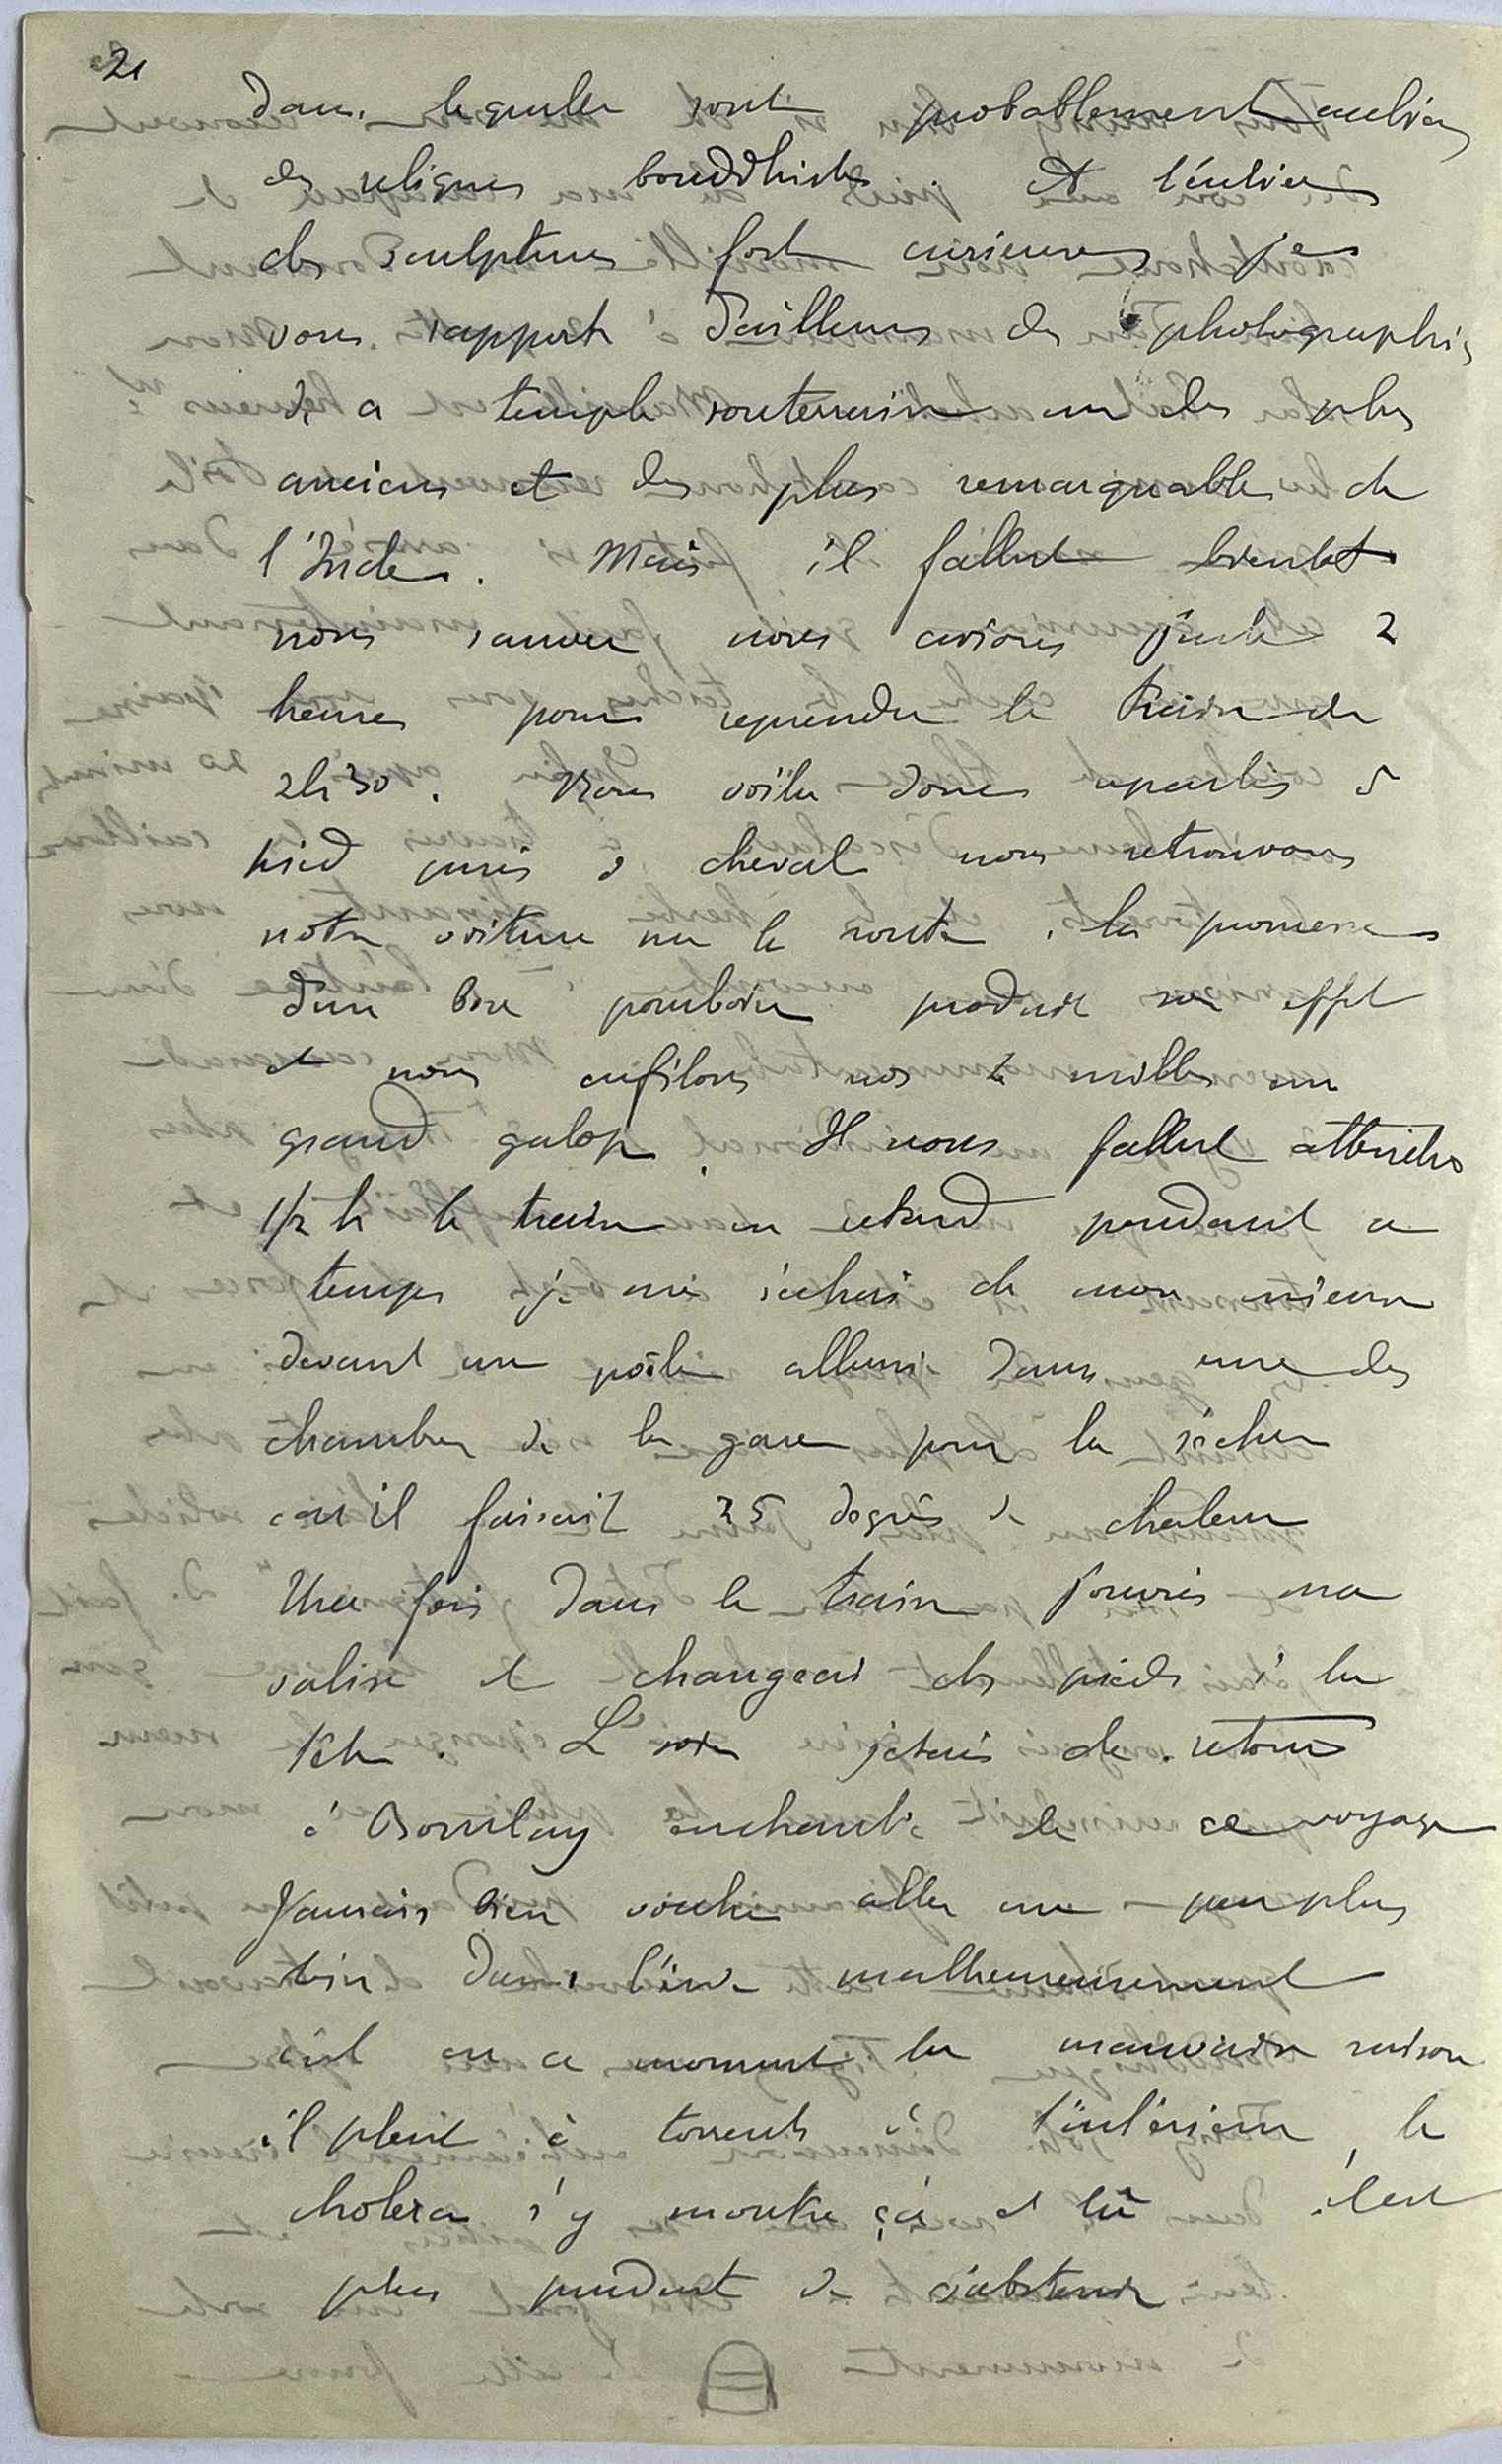 21
dans lesquelles sont probablement enclines
des reliques bouddhistes. et l'entrée
des sculptures fort curieuses je
vous rapporte d'ailleurs des photographies
de ce temple souterrain un des plus
anciens et des plus remarquables de
l'Inde. Mais il fallut bientot
nous sauver nous avions juste 2
heures pour reprendre le train de
2h30. Nous voila donc repartis à
pied puis à cheval nous retrouvons
notre voiture sur la route. la promesse
d'un bon pourboire produit son effet
et nous enfilons nos 4 milles au
grand galop. Il nous fallut attendre
1/2 h le train en retard pendant ce
temps je me séchais de mon mieux
devant un poêle allumé dans une des
chambres de la gare pour la sécher
car il faisait 35 degrés de chaleur
Une fois dans le train j'ouvris ma
valise et changeai des pieds à la
tête. Le soir j'étais de retour
à Bombay enchanté de ce voyage
J'aurais bien voulu aller un peu plus
loin dans l'inde malheureusement
c'est en ce moment la mauvaise saison
il pleut à torrents à l'intérieur, le
cholera s'y montre çà et là il est
plus prudent de s'abstenir